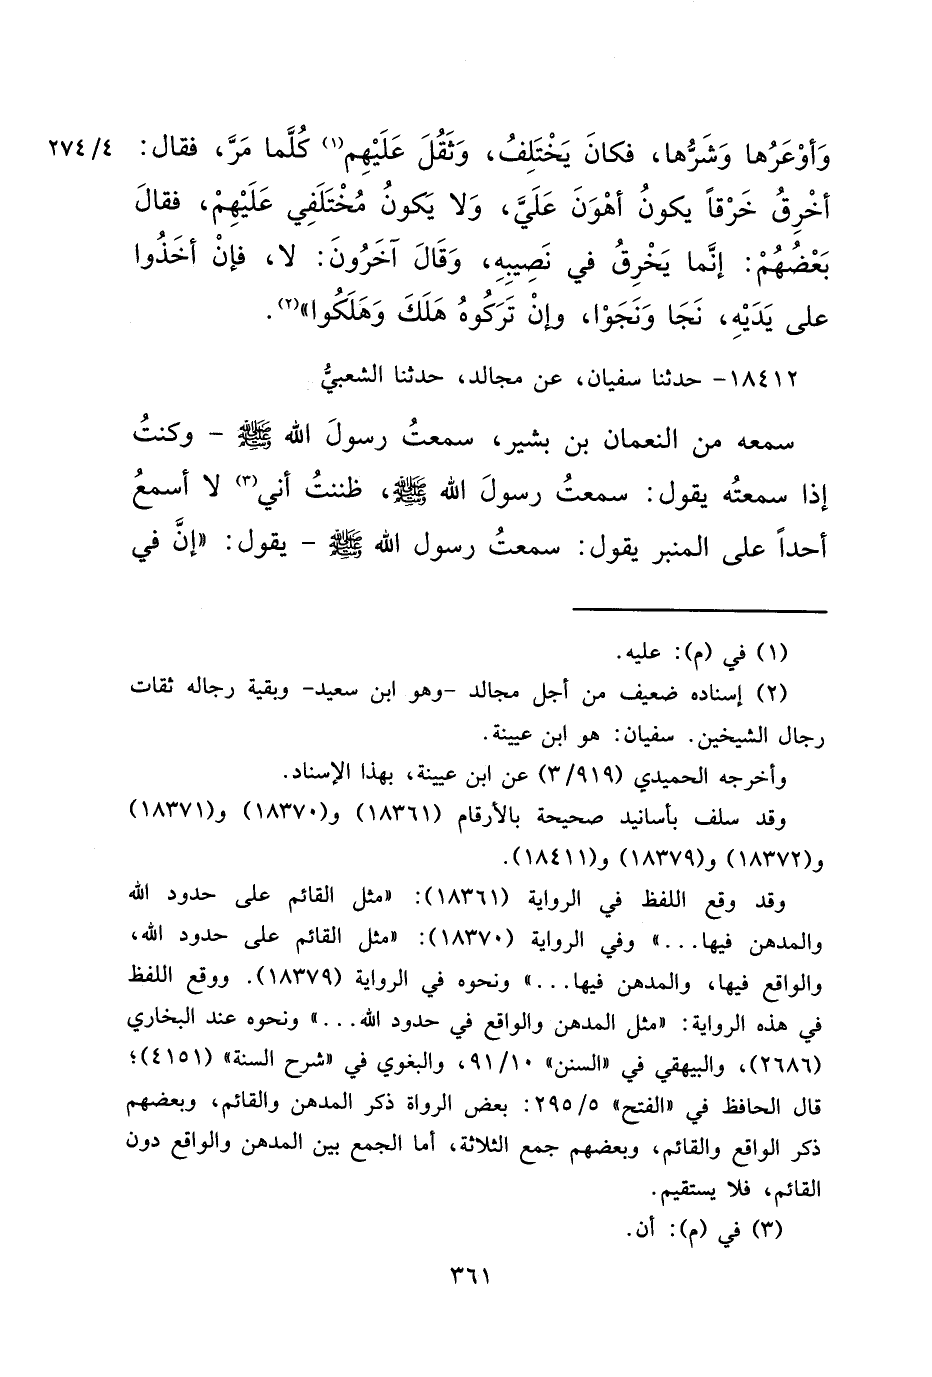 وَأوْعَرُها وَشَرُّها، فكانَ يَخْتَلِفُ، وَثَقُلَ عَلَيْهِم(١) كُلَّما مَرَّ، فقال: ٢٧٤/٤
أخْرِقُ خَرْقاً يكونُ أهْوَنَ عَلَيَّ، وَلا يَكونُ مُخْتَلَفِي عَلَيْهِمْ، فقالَ
بَعْضُهُمْ: إنَّما يَخْرِقُ في نَصِيبِهِ، وَقَالَ آخَرُونَ: لا، فإنْ أخَذُوا
على يَدَيْهِ، نَجَا وَنَجَوْا، وإنْ تَرَكُوهُ هَلَكَ وَهَلَكُوا»(٢).
١٨٤١٢- حدثنا سفيان، عن مجالد، حدثنا الشعبيُّ
سمعه من النعمان بن بشير، سمعتُ رسولَ الله ﷺ - وكنتُ
إذا سمعتُه يقول: سمعتُ رسولَ الله ﷺ، ظننتُ أني(٣) لا أسمعُ
أحداً على المنبر يقول: سمعتُ رسول الله ﷺ - يقول: «إنَّ في
(١) في (م): عليه.
(٢) إسناده ضعيف من أجل مجالد -وهو ابن سعيد- وبقية رجاله ثقات
رجال الشيخين. سفيان: هو ابن عيينة.
وأخرجه الحميدي (٣/٩١٩) عن ابن عيينة، بهذا الإسناد.
وقد سلف بأسانيد صحيحة بالأرقام (١٨٣٦١) و(١٨٣٧٠) و(١٨٣٧١)
و(١٨٣٧٢) و(١٨٣٧٩) و(١٨٤١١).
وقد وقع اللفظ في الرواية (١٨٣٦١): «مثل القائم على حدود الله
والمدهن فيها...» وفي الرواية (١٨٣٧٠): «مثل القائم على حدود الله،
والواقع فيها، والمدهن فيها...» ونحوه في الرواية (١٨٣٧٩). ووقع اللفظ
في هذه الرواية: «مثل المدهن والواقع في حدود الله...» ونحوه عند البخاري
(٢٦٨٦)، والبيهقي في «السنن» ٩١/١٠، والبغوي في «شرح السنة» (٤١٥١)؛
قال الحافظ في «الفتح» ٢٩٥/٥: بعض الرواة ذكر المدهن والقائم، وبعضهم
ذكر الواقع والقائم، وبعضهم جمع الثلاثة، أما الجمع بين المدهن والواقع دون
القائم، فلا يستقيم.
(٣) في (م): أن.
٣٦١